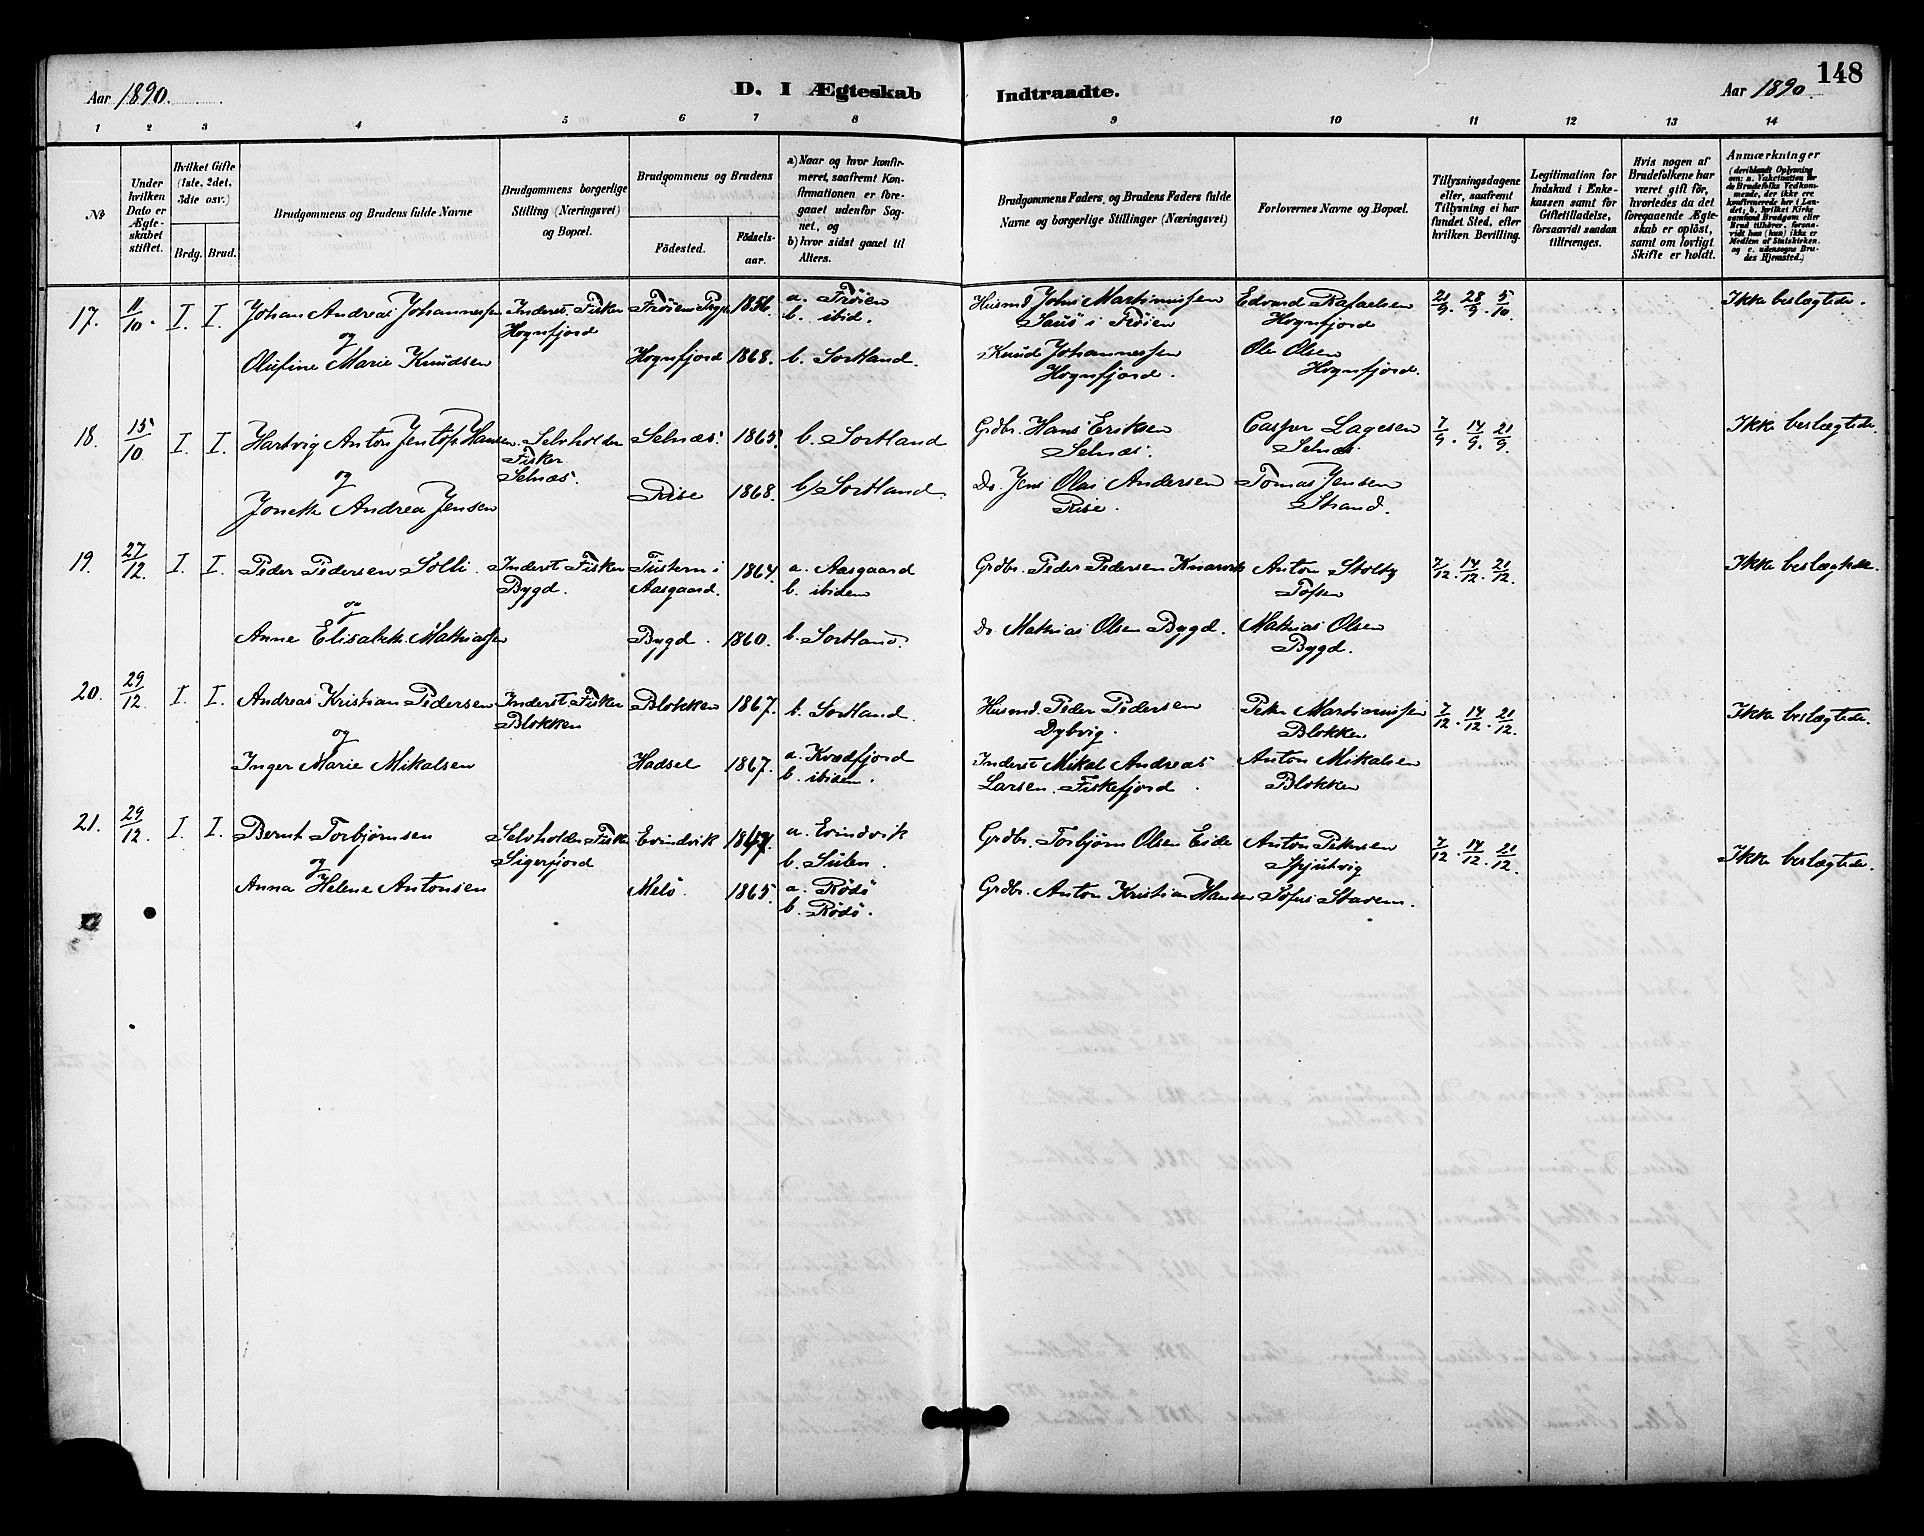 148
Aar 1890.
D. I Ægteskab Indtraadte.
Aar 1890.
1 2 3 4 5 6 7 8 9 10 11 12 13 14
No
Under hvilken Dato er Ægteskabet stiftet.
Hvilket Gifte (1ste, 2det, 3die osv.)
Brdg. Brud.
Brudgommens og Brudens fulde Navne
Brudgommens borgerlige Stilling (Næringsvei) og Bopæl.
Brudgommens og Brudens
Födested.
Födsels-aar.
a) Naar og hvor konfirmeret, saafremt Konfirmationen er foregaaet udenfor Sognet, og
b) hvor sidst gaaet til Alters.
Brudgommens Faders, og Brudens Faders fulde Navne og borgerlige Stillinger (Næringsvei)
Forlovernes Navne og Bopæl.
Tillysningsdagene eller, saafremt Tillysning ei har fundet Sted, efter hvilken Bevilling.
Legitimation for Indskud i Enkekassen samt for Giftetilladelse, forsaavidt saadan tiltrænges.
Hvis nogen af Brudefolkene har været gift för, hvorledes da det foregaaende Ægteskab er oplöst, samt om lovligt Skifte er holdt.
Anmærkninger
(deriblandt Oplysning om: a. Vakcination for de Brudefolks Vedkommende, der ikke ere konfirmerede her i Landet; b. hvilket Kirkesamfund Brudgom eller Brud tilhörer, forsaavidt han (hun) ikke er Medlem af Statskirken, og c. udensogns Brudes Hjemsted.)
17. 11/10. I. I. Johan Andreas Johannessen Inderst. Fisker Frøien 1856. a. Frøien Husmd Johs Martinussen Edvard Rafaelsen 21/9. 28/9. 5/10 Ikke beslægtede.
og Hognfjord b. ibid. i Frøien Hognfjord
Olufine Marie Knudsen Hognfjord 1868. b. Sortland. Knud Johannessen Ole Olsen
Hognfjord. Hognfjord.
18. 15/10 I I Hartvig Anton Jentoft Hansen. Selvholder Selnæs. 1865. b. Sortland Grdbr. Hans Eriksen Casper Lagesen 7/9. 14/9. 21/9. Ikke beslægtede.
Fisker Selnæs. Selnæs
og Selnæs.
Jonette Andrea Jensen Rise 1868. b. Sortland. Do. Jens Olai Andersen Tomas Jensen
Rise. Strand.
19. 27/12. I. I. Peder Pedersen Solli Inderst Fisker Tustern i 1864. a. Aasgaard Grdbr. Peder Pedersen Knarvik Anton Stoltz 7/12. 14/12. 21/12. Ikke beslægtede.
Bygd. Aasgaard. b. ibidem
og
Anne Elisabeth Mathiassen Bygd. 1860. b. Sortland. Do Mathias Olsen Bygd. Mathias Olsen
Bygd.
20. 29/12. I I. Andreas Kristian Pedersen Inderst Fisker Blokken 1867. b. Sortland. Husmd. Peder Pedersen Peter Martinussen 7/12. 14/12. 21/12. Ikke beslægtede.
og Blokken Dybvig. Blokken
Inger Marie Mikalsen Hadsel 1867. a. Kvædfjord Inderst Mikal Andreas Anton Mikalsen
b. ibidem. Larsen. Fiskefjord. Blokken
21. 29/12. I I. Bernt Torbjørnsen Selvholder Fisker Evindvik a. Evindvik Grdbr. Torbjørn Olsen Eide Anton Pettersen 7/12. 14/12. 21/12. Ikke beslægtede.
og Sigerfjord b. Sulen.
Anna Helene Antonsen Melö 1865. a. Rödö Grdbr. Anton Kristian Hansen Sofus Stavem.
b. Rödö.